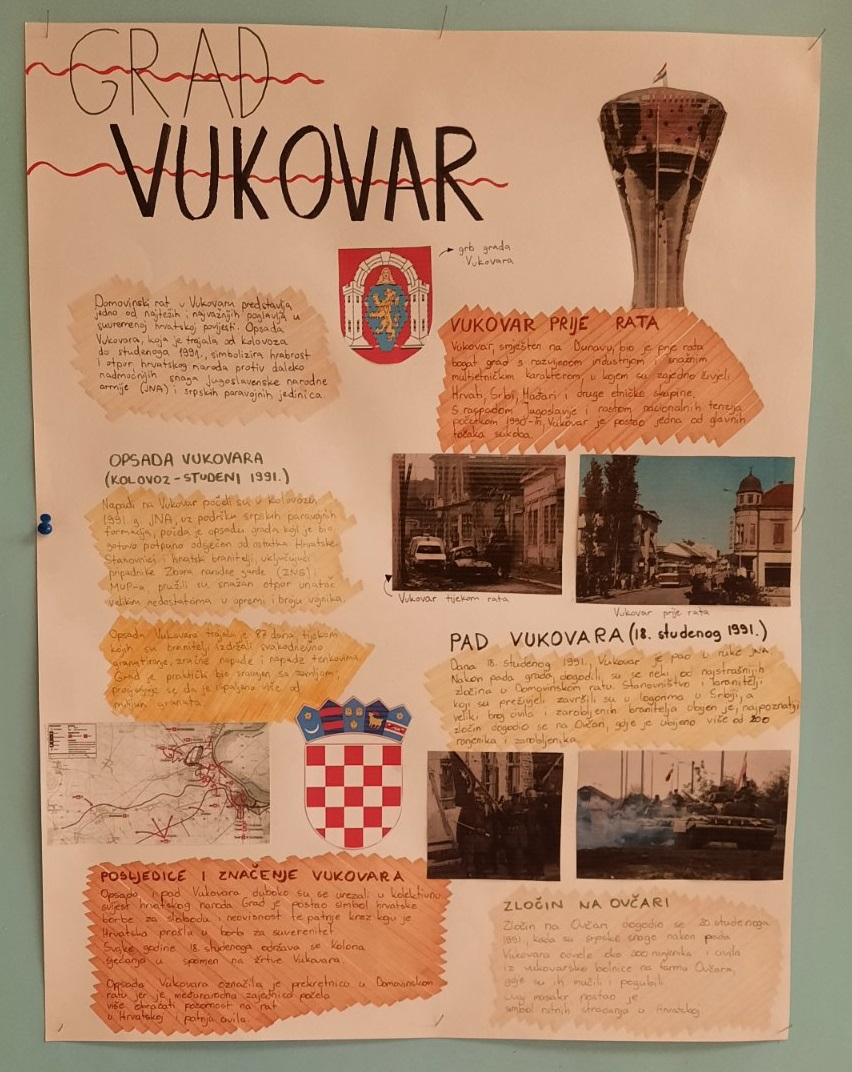 GRAD
VUKOVAR
grb grada
Vukovara
Domovinski rat u Vukovaru predstavlja
jedno od najtežih i najvažnijih poglavlja u
suvremenoj hrvatskoj povijesti. Opsada
Vukovara, koja je trajala od kolovoza
do studenoga 1991., simbolizira hrabrost
i otpor hrvatskog naroda protiv daleko
nadmoćnijih snaga jugoslavenske narodne
armije (JNA) i srpskih paravojnih jedinica.
VUKOVAR PRIJE RATA
Vukovar, smješten na Dunavu, bio je prije rata
bogat grad s razvijenom industrijom i snažnim
multietničkim karakterom, u kojem su zajedno živjeli
Hrvati, Srbi, Mađari i druge etničke skupine.
S raspadom Jugoslavije i rastom nacionalnih tenzija
početkom 1990-ih, Vukovar je postao jedna od glavnih
točaka sukoba.
OPSADA VUKOVARA
(KOLOVOZ-STUDENI 1991.)
Napadi na Vukovar počeli su u kolovozu
1991.g. JNA, uz podršku srpskih paravojnih
formacija, počela je opsadu grada koji je bio
gotovo potpuno odsječen od ostatka Hrvatske.
Stanovnici i hrvatski branitelji, uključujući
pripadnike Zbora narodne garde (ZNG) i
MUP-a, pružili su snažan otpor unatoč
velikim nedostatcima u opremi i broju vojnika.
Opsada Vukovara trajala je 87 dana, tijekom
kojih su branitelji izdržali svakodnevno
granatiranje, zračne napade i napade tenkovima.
Grad je praktički bio sravnjen sa zemljom,
procjenjuje se da je ispaljeno više od
milijun granata.
Vukovar tijekom rata
Vukovar prije rata
PAD VUKOVARA (18. studenog 1991.)
Dana 18. studenog 1991. Vukovar je pao u ruke JNA.
Nakon pada grada, dogodili su se neki od najstrašnijih
zločina u Domovinskom ratu. Stanovništvo i branitelji
koji su preživjeli završili su u logorima u Srbiji, a
veliki broj civila i zarobljenih branitelja ubijen je, najpoznatiji
zločin dogodio se na Ovčari, gdje je ubijeno više od 200
ranjenika i zarobljenika.
POSLJEDICE I ZNAČENJE VUKOVARA
Opsada i pad Vukovara duboko su se urezali u kolektivnu
svijest hrvatskog naroda. Grad je postao simbol hrvatske
borbe za slobodu i neovisnost te patnje kroz koju je
Hrvatska prošla u borbi za suverenitet.
Svake godine 18. studenoga održava se Kolona
sjećanja u spomen na žrtve Vukovara.
Opsada Vukovara označila je prekretnicu u Domovinskom
ratu jer je međunarodna zajednica počela
više obraćati pozornost na rat
u Hrvatskoj i patnju civila.
ZLOČIN NA OVČARI
Zločin na Ovčari dogodio se 20. studenoga
1991., kada su srpske snage nakon pada
Vukovara odvele oko 200 ranjenika i civila
iz vukovarske bolnice na farmu Ovčara,
gdje su ih mučili i pogubili.
Ovaj masakr postao je
simbol ratnih stradanja u Hrvatskoj